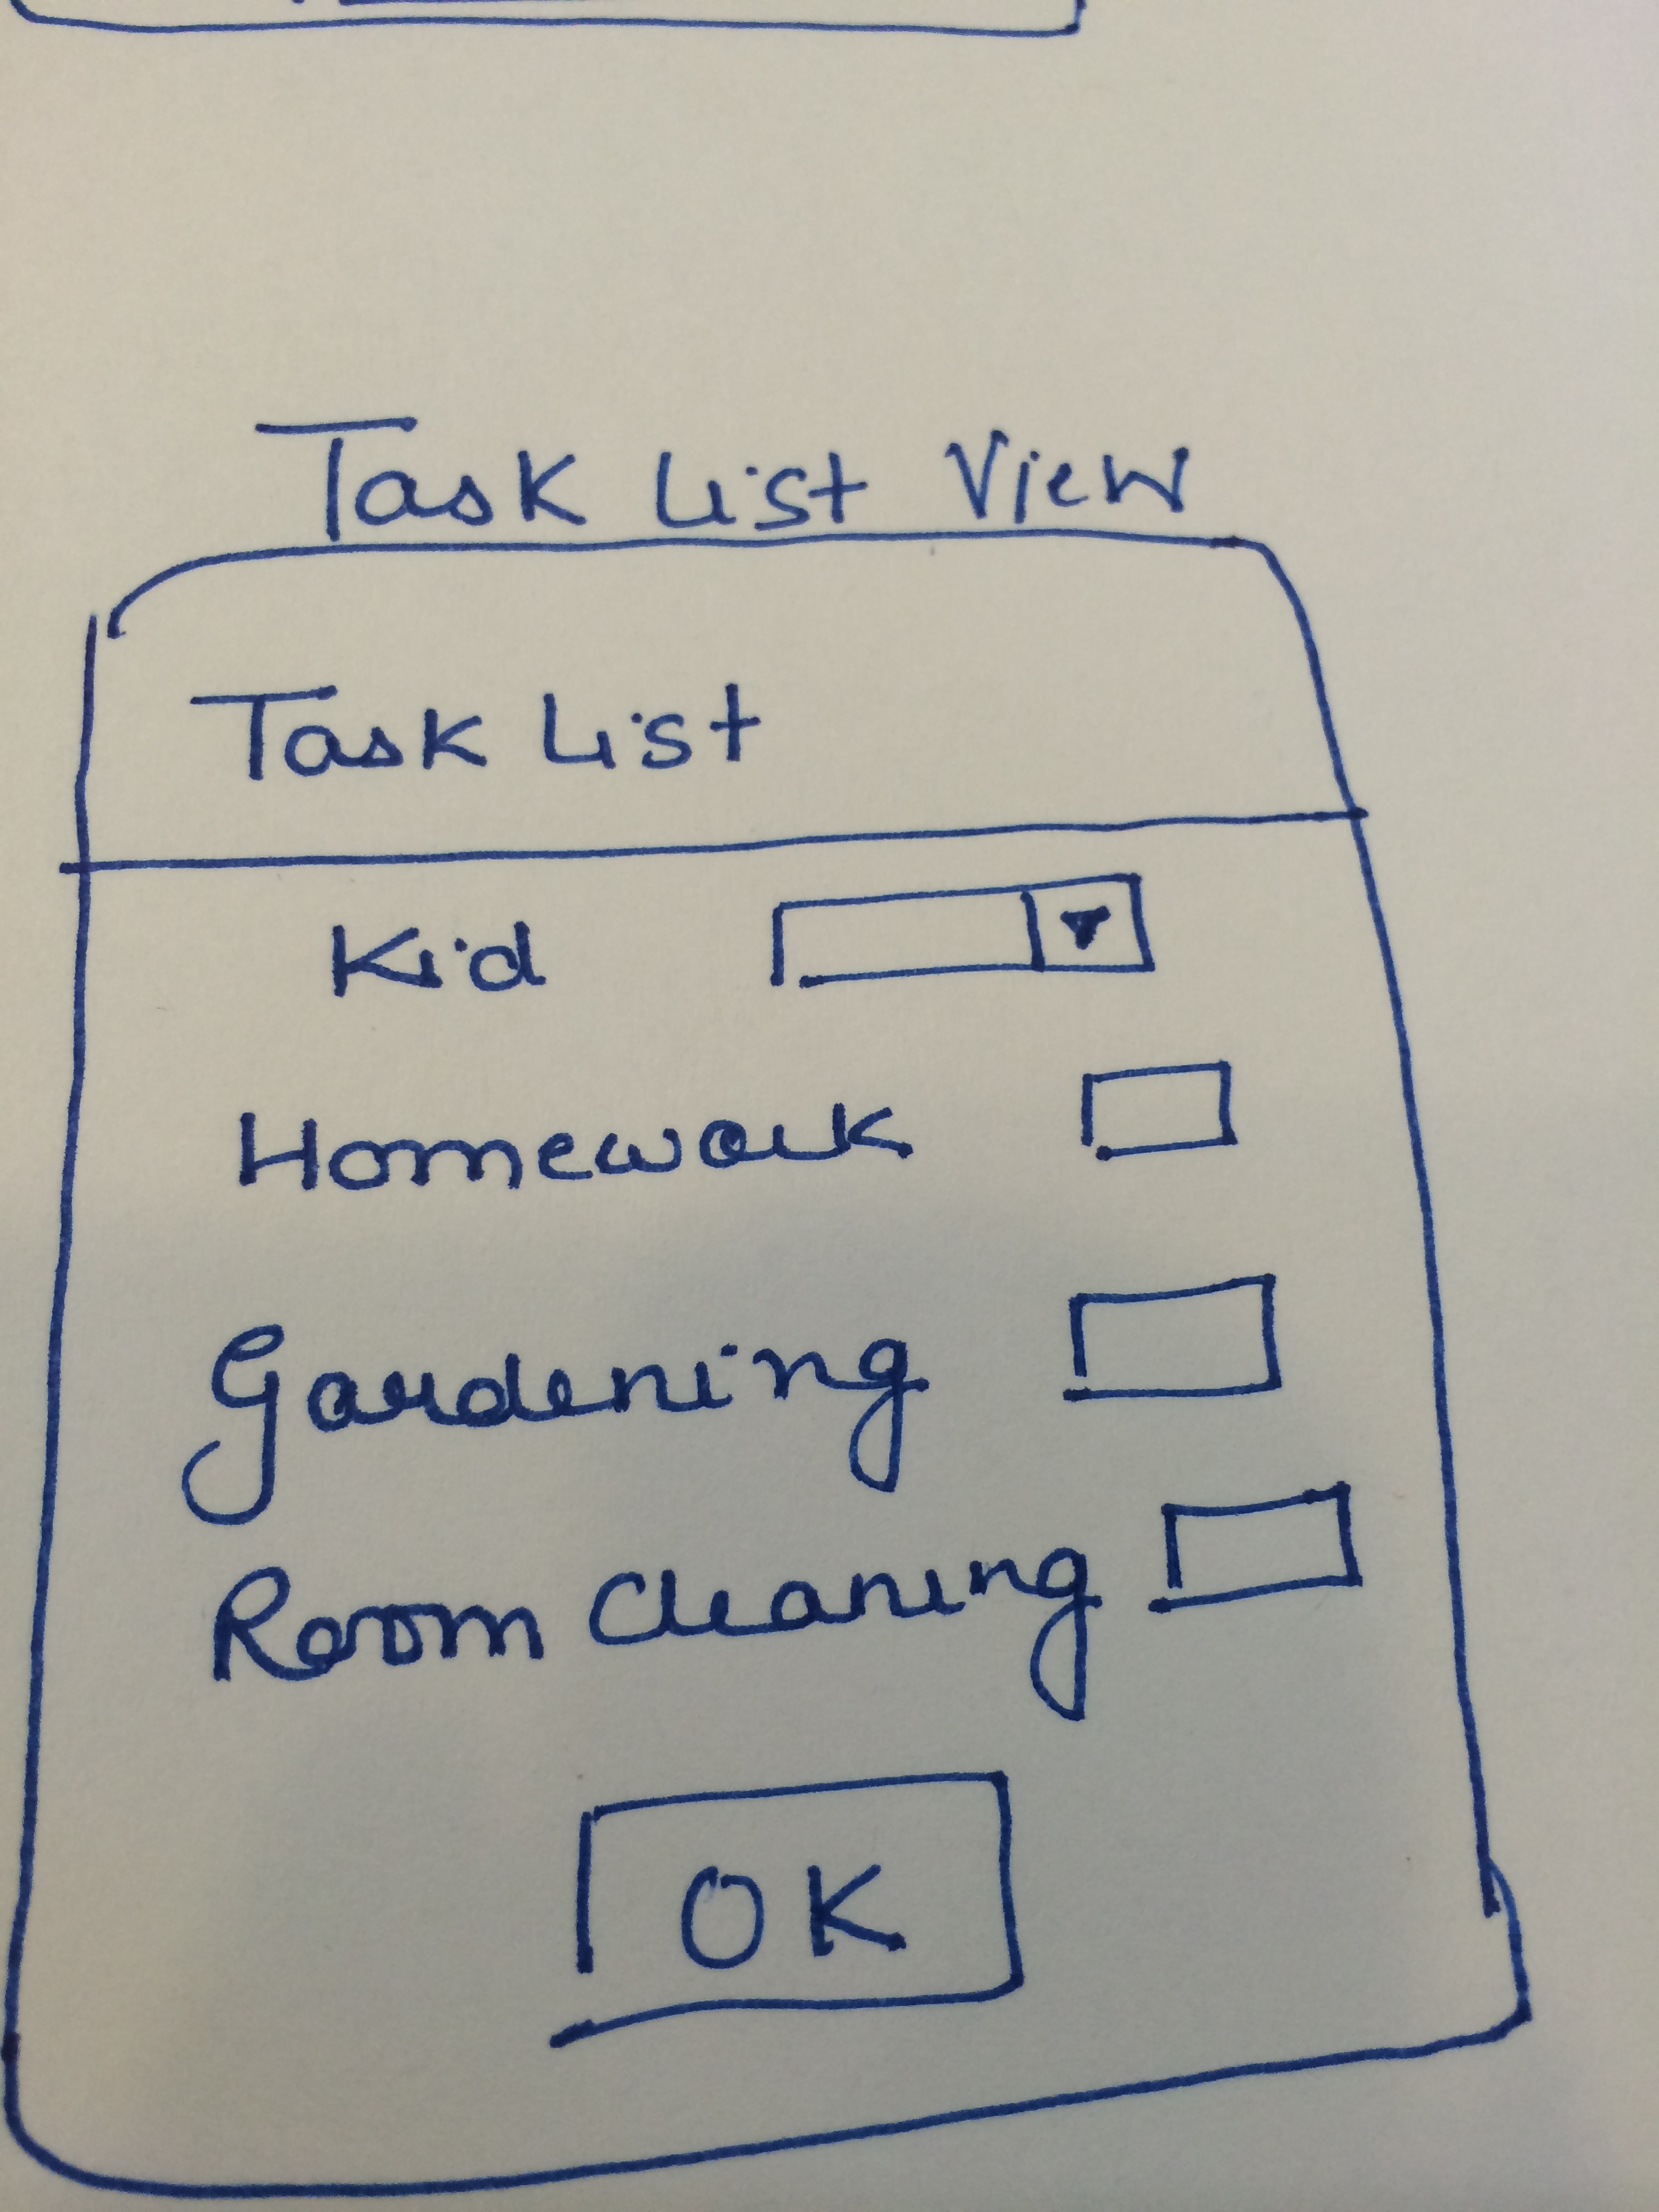 Task List View
Task List
Kid
Homework
Gardening
Room Cleaning
OK